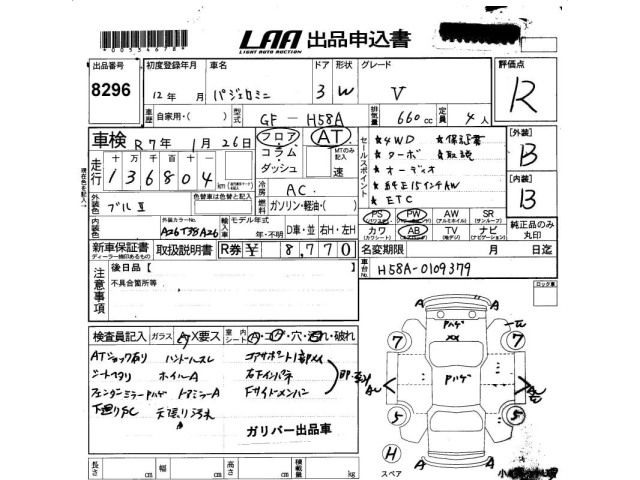 553467B
LAA 出品申込書
LIGHT AUTO AUCTION
出品番号 8296
初度登録年月 12年 月
車名 パジェロミニ
ドア 3
形状 W
グレード V
評価点 R
車歴 自家用・( )
型式 GF - H58A
排気量 660cc
定員 4人
車検 R7年 1月 26日
フロア
コラム
ダッシュ
AT
MTのみ記入
速
セールスポイント
★4WD ★保証書
★ターボ ★取説
★オーディオ
★純正15インチAW
★ETC
[外装] B
[内装] B
走行
十万 万 千 百 十
136804km
現在色を記入
冷房 AC
外装色 ブルⅡ
色替車は色替と記入
燃料 ガソリン・軽油・( )
内装色
外装カラーNo.
A26T38A26
輸入車
モデル年式
年・不明
D車・並
右H・左H
PS (パワステ)
PW
AW (アルミホイル)
SR (サンルーフ)
カワ (カワシート)
AB
TV (地デジ)
ナビ (ナビゲーション)
純正品のみ丸印
新車保証書
ディーラー捺印あるもの
取扱説明書
R券 ¥ 8,770
名変期限 月 日迄
車台No. H58A-0109379
注意事項
後日品 [ ]
不具合箇所等
ロック車
検査員記入
ガラス
X要ス
室内
シート
・穴・汚れ・破れ
ATショック有り ハンドルスレ コアサポート
シートヘタリ ホイルA 右下インパネ
フェンダーミラーPハゲ ドアミラーA Fサイドメンバー
下廻りSC 天張り汚れ
ガリバー出品車
Pハゲ
XX
Pハゲ
7
7
5
5
A
A
A
A
H
スペア
長さ cm
幅 cm
高さ cm
積載量 kg